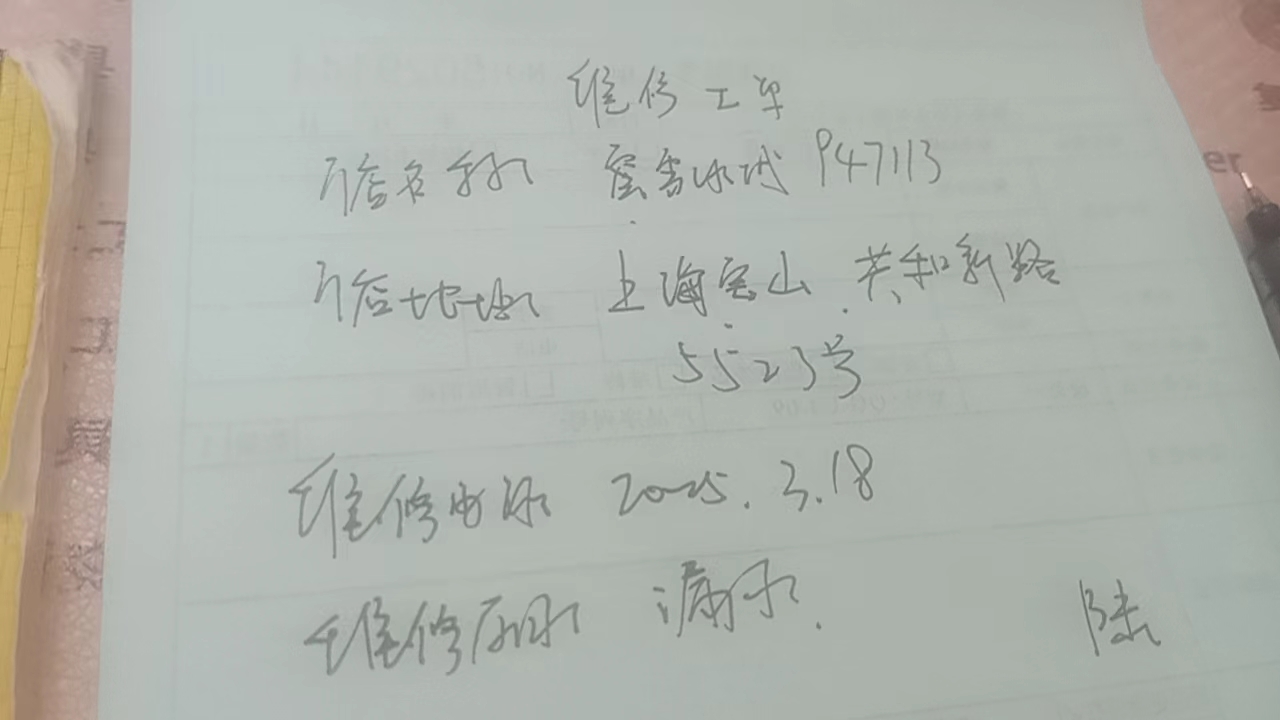 维修工单
门店名称 蜜雪冰城 947113
门店地址 上海宝山 共和新路
5523号
维修时间 2025.3.18
维修原因 漏水.
陆